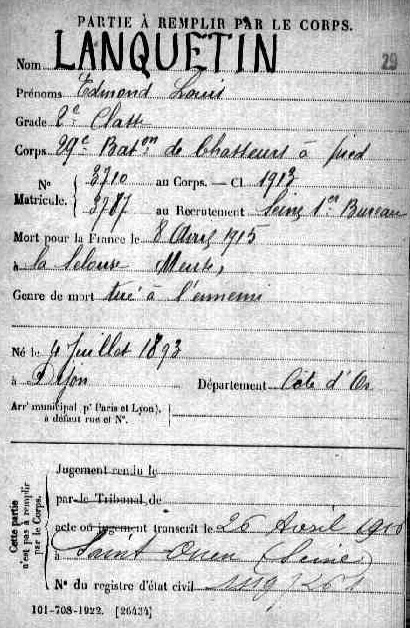 PARTIE À REMPLIR PAR LE CORPS.
Nom LANQUETIN 29
Prénoms Edmond Louis
Grade 2e Classe
Corps 29e Baton de Chasseurs à pied
No 3710 au Corps. — Cl 1913
Matricule. 3787 au Recrutement Seine 1er Bureau
Mort pour la France le 8 Avril 1915
à la Selouse Meuse,
Genre de mort tué à l'ennemi
Né le 4 Juillet 1893
à Dijon Département Côte d'Or
Arrt municipal (pr Paris et Lyon),
à défaut rue et No.
Cette partie
n'est pas à remplir
par le Corps.
Jugement rendu le
par le Tribunal de
acte ou jugement transcrit le 26 Avril
à Saint Ouen (Seine)
No du registre d'état civil
101-708-1922. [26434]